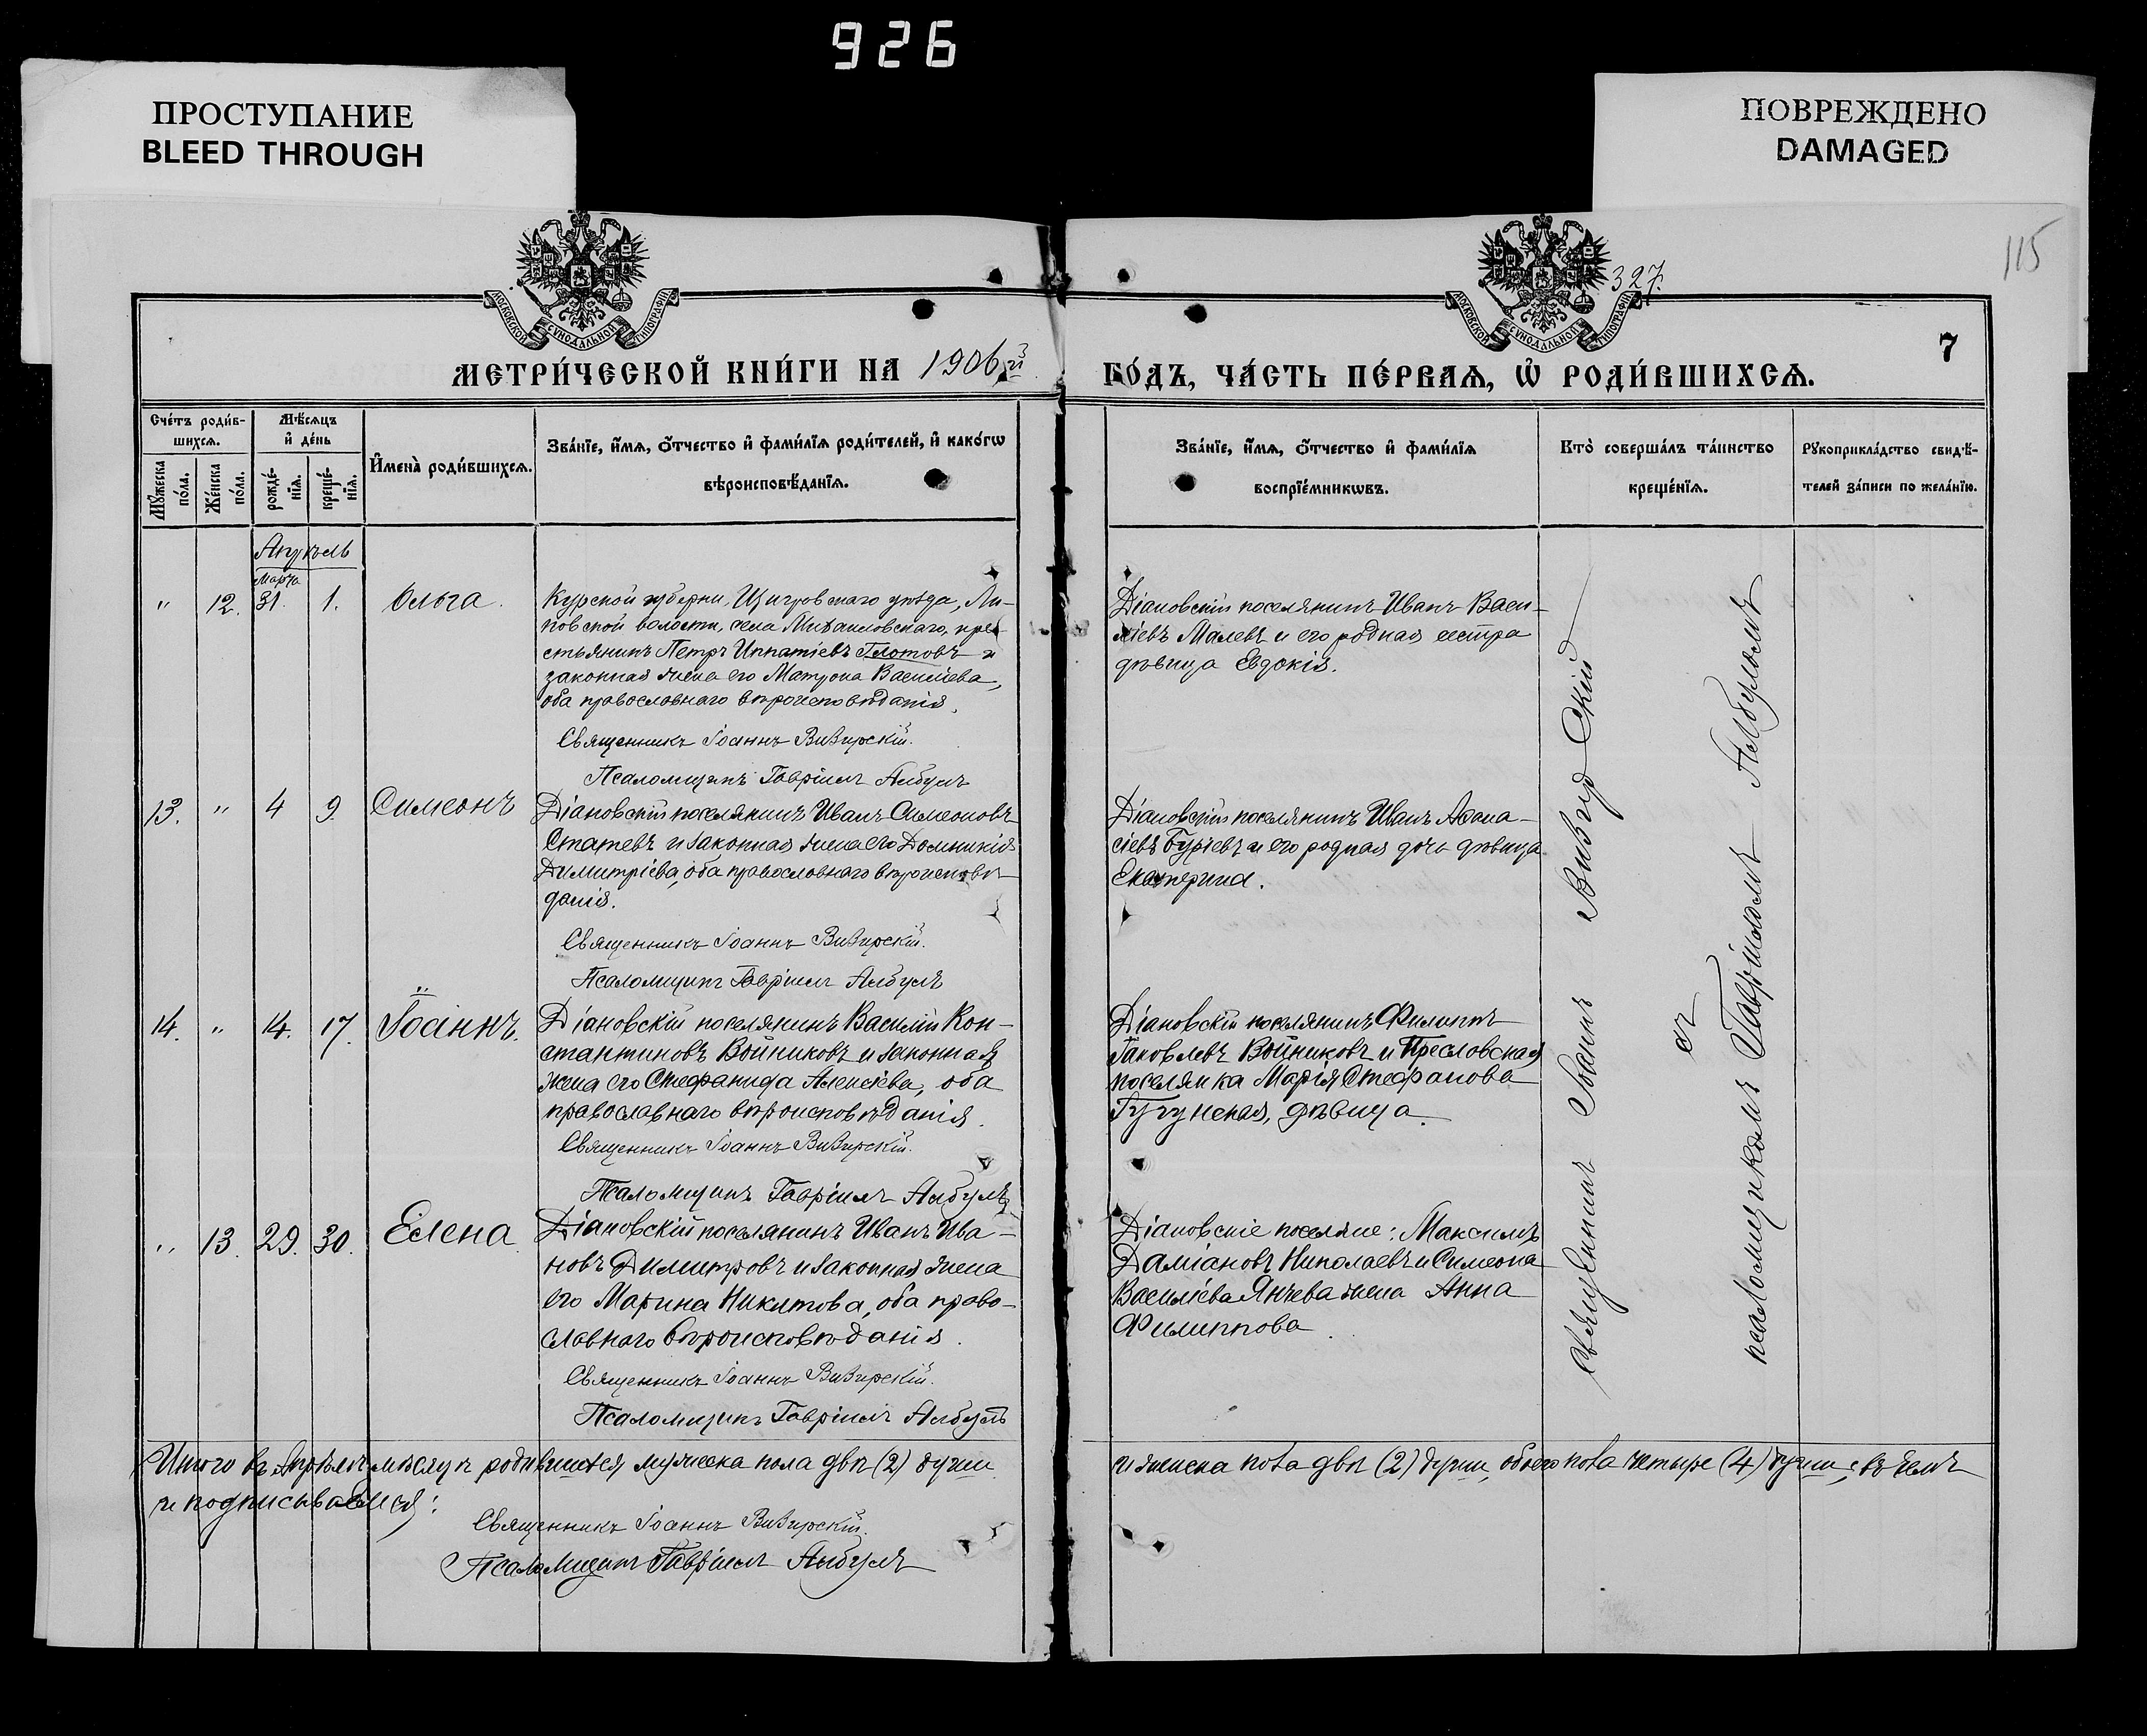 926
ПРОСТУПАНИЕ
BLEED THROUGH
ПОВРЕЖДЕНО
DAMAGED
115
327.
МОСКОВСКОЙ СѴНОДАЛЬНОЙ ТИПОГРАФІИ
МОСКОВСКОЙ СѴНОДАЛЬНОЙ ТИПОГРАФІИ
7
МЕТРИ́ЧЕСКОЙ КНИ́ГИ НА 1906й ГО́ДЪ, ЧА́СТЬ ПЕ́РВАѦ, Ѡ҆ РОДИ́ВШИХСѦ.
Сче́тъ роди́в-
шихсѧ.
Мѣ́сѧцъ
и҆ де́нь
Мꙋ́жеска
по́ла.
Же́нска
по́ла.
рожде́-
нїѧ.
креще́-
нїѧ.
И҆мена̀ роди́вшихсѧ.
Зва́нїе, и҆́мѧ, ѻ҆́тчество и҆ фами́лїѧ роди́телей, и҆ како́гѡ
вѣроисповѣ́данїѧ.
Зва́нїе, и҆́мѧ, ѻ҆́тчество и҆ фами́лїѧ
воспрїе́мникѡвъ.
Кто̀ соверша́лъ та́инство
креще́нїѧ.
Рꙋкоприкла́дство свидѣ́-
телей за́писи по жела́нїю.
Апрѣль
Марта
" 12. 31. 1. Ольга.
Курской губерни, Щигровскаго уѣзда, Ли-
повской волости, села Михаиловскаго, кре-
стьянинъ Петръ Иппатіевъ Глотовъ и
законная жена его Матрона Василіева,
оба православнаго вѣроисповѣданія.
Священникъ Іоаннъ Визирскій.
Псаломщикъ Гавріилъ Албулъ
Діановскій поселянинъ Иванъ Васи-
ліевъ Малевъ и его родная сестра
дѣвица Евдокія.
13. " 4 9. Симеонъ
Діановскій поселянинъ Иванъ Симеоновъ
Статевъ и законная жена его Домникія
Димитріева, оба православнаго вѣроисповѣ-
данія.
Священникъ Іоаннъ Визирскій.
Псаломщикъ Гавріилъ Албулъ
Діановскій поселянинъ Иванъ Аѳана-
сіевъ Буріевъ и его родная дочь дѣвица
Екатерина.
14. " 14. 17. Іоаннъ.
Діановскій поселянинъ Василій Кон-
стантиновъ Войниковъ и законная
жена его Стефанида Алексіева, оба
православнаго вѣроисповѣданія.
Священникъ Іоаннъ Визирскій.
Псаломщикъ Гавріилъ Албулъ
Діановскій поселянинъ Филиппъ
Іаковлевъ Войниковъ и Преславская
поселянка Марія Стефанова
дѣвица.
" 13. 29. 30. Елена
Діановскій поселянинъ Иванъ Ива-
новъ Димитровъ и законная жена
его Марина Никитова, оба право-
славнаго вѣроисповѣданія.
Священникъ Іоаннъ Визирскій.
Псаломщикъ Гавріилъ Албулъ
Діановскіе поселяне: Максимъ
Даміановъ Николаевъ и Симеона
Василіева Янчева жена Анна
Филиппова
Священникъ Іоаннъ Визирскій
съ
псаломщикомъ Гавріиломъ Албуломъ
Итого въ Апрѣлѣ мѣсяцѣ родившихся мужеска пола двѣ (2) души
и женска пола двѣ (2) души, обоего пола четыре (4) души; въ чемъ
и подписываемся:
Священникъ Іоаннъ Визирскій.
Псаломщикъ Гавріилъ Албулъ